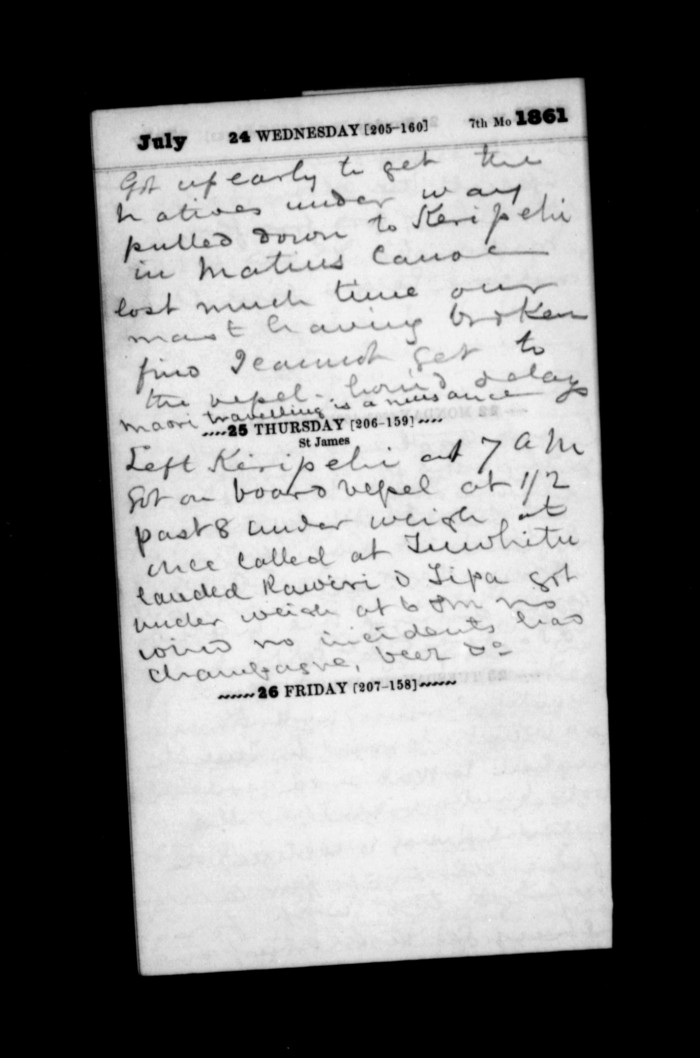 July 24 WEDNESDAY [205-160] 7th Mo 1861
Got up early to get the
natives under way
pulled down to Keripehi
in Matius Canoe
lost much time our
mast having broken
find I cannot get to
the vessel. horrid delay
maori travelling is a nuisance
25 THURSDAY [206-159]
St James
Left Keripehi at 7 A M
Got on board vessel at 1/2
past 8 under weigh at
once called at
landed Rawiri & Tipa got
under weigh at 6 PM no
wind no incidents had
Champagne, beer &c
26 FRIDAY [207-158]